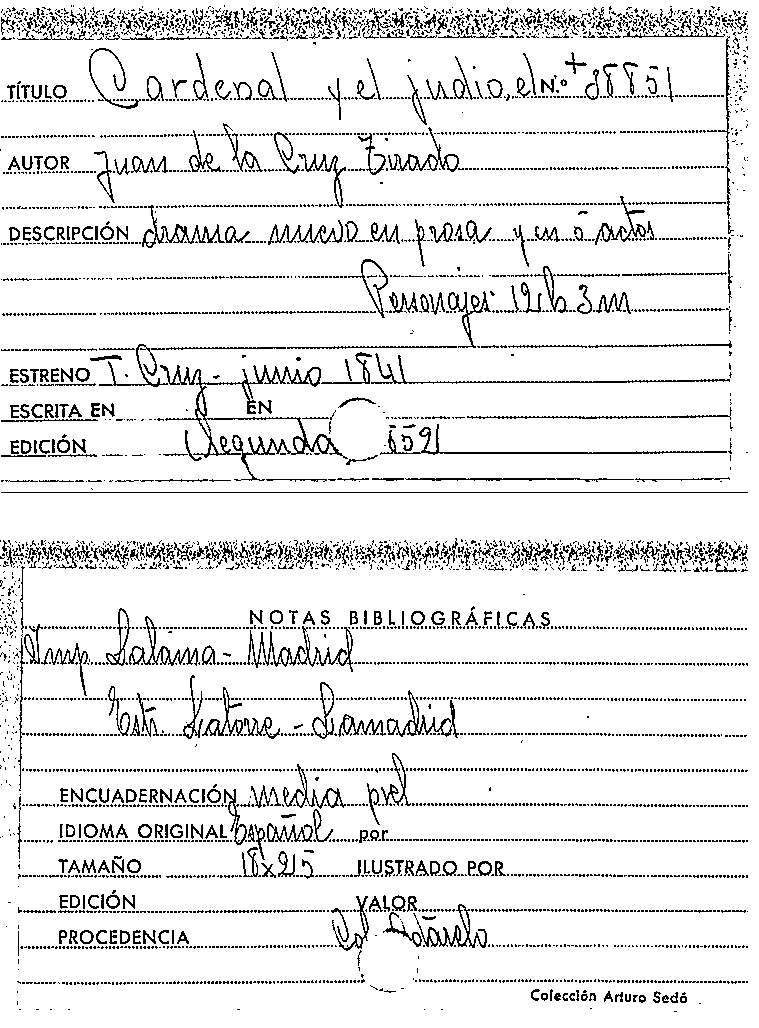 TÍTULO Cardenal y el judio, el N.º + 38851
AUTOR Juan de la Cruz Tirado
DESCRIPCIÓN drama nuevo en prosa y en 5 actos
Personajes 12 h 3 m
ESTRENO T. Cruz - junio 1841
ESCRITA EN EN
EDICIÓN Segunda
NOTAS BIBLIOGRÁFICAS
Imp. - Madrid
Estr. Latorre - Lamadrid
ENCUADERNACIÓN media piel
IDIOMA ORIGINAL Español por
TAMAÑO 18x215 ILUSTRADO POR
EDICIÓN VALOR
PROCEDENCIA Col
Colección Arturo Sedó